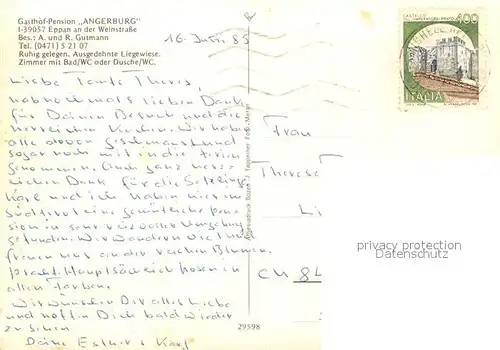 Gasthof-Pension „ANGERBURG"
I-39057 Eppan an der Weinstraße
Bes.: A. und R. Gutmann
Tel. (0471) 5 21 07
Ruhig gelegen. Ausgedehnte Liegewiese.
Zimmer mit Bad/WC oder Dusche/WC.
16. Juni 85
CASTELLO
DELL'IMPERATORE·PRATO
400
ITALIA
Liebe Tante Theres,
habe nochmals lieben Dank
für Deinen Besuch und die
herrlichen Wir haben
alle davon geschmaust und
sogar noch mit in die Ferien
genommen. Auch ganz herz-
lichen Dank für die Setzlinge
Karl und ich haben hier im
Südtirol eine gemütliche Pen-
sion in sehr reizvoller Umgebung
gefunden. Wir wandern viel und
freuen uns an der reichen Blumen-
pracht. Hauptsächlich Rosen in
allen Farben.
Wir wünschen Dir alles Liebe
und hoffen Dich bald wieder
zu sehen
Deine Esther & Karl
Frau
Therese
Li
CH 84
29598
privacy protection
AnsichtskartenVersand.com